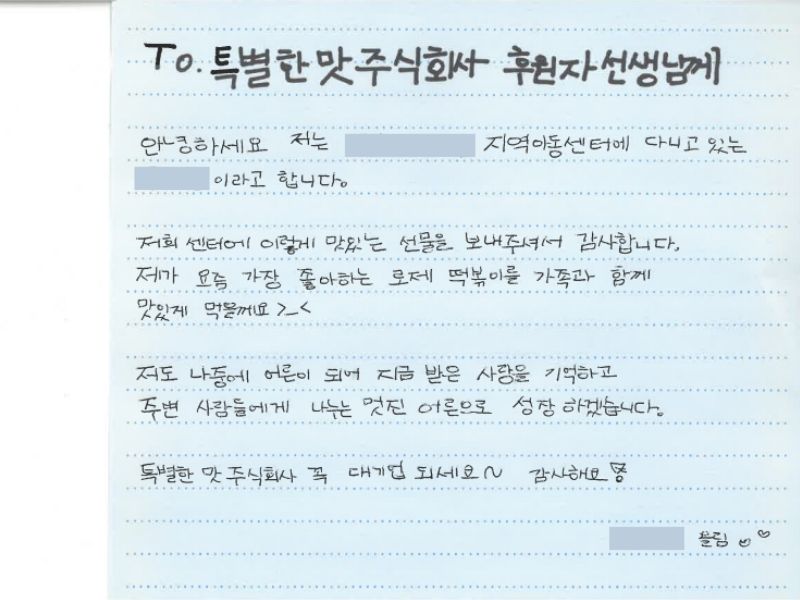 To. 특별한 맛 주식회사 후원자 선생님께
안녕하세요 저는 지역아동센터에 다니고 있는
이라고 합니다.
저희 센터에 이렇게 맛있는 선물을 보내주셔서 감사합니다.
제가 요즘 가장 좋아하는 로제 떡볶이를 가족과 함께
맛있게 먹을께요 >_<
저도 나중에 어른이 되어 지금 받은 사랑을 기억하고
주변 사람들에게 나누는 멋진 어른으로 성장 하겠습니다.
특별한 맛 주식회사 꼭 대기업 되세요~ 감사해요
올림